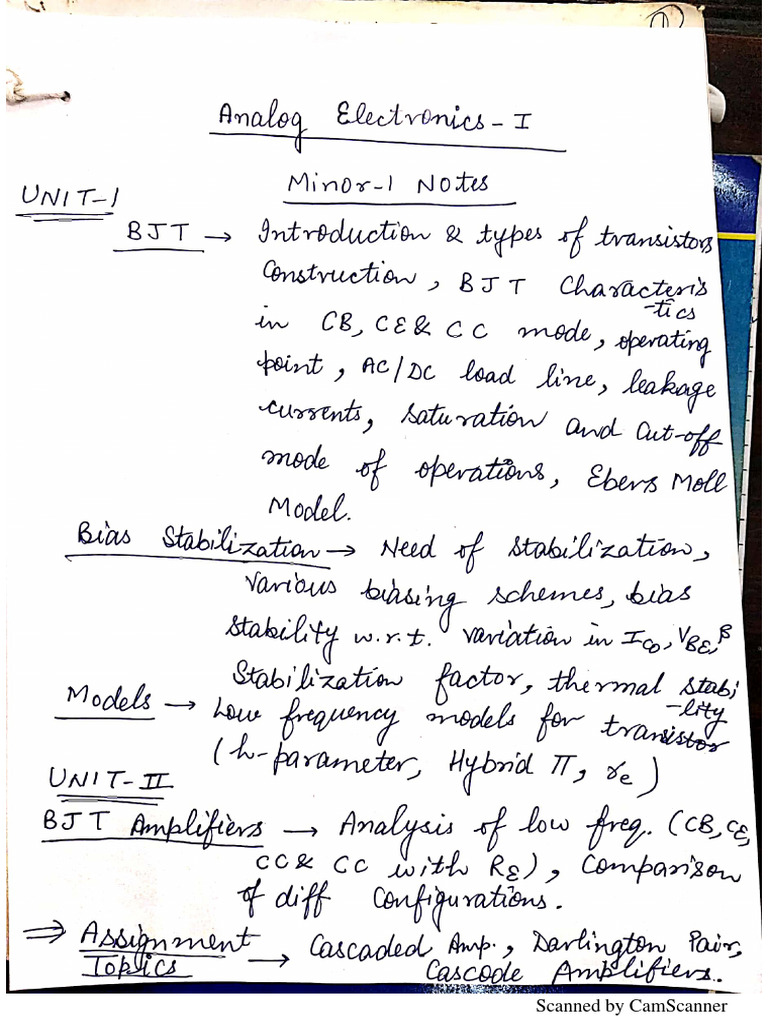 Analog Electronics-I
Minor-1 Notes
UNIT-1
BJT → Introduction & types of transistors
Construction, BJT Characteris
-tics
in CB, CE & CC mode, operating
point, AC/DC load line, leakage
currents, saturation and cut-off
mode of operations, Ebers Moll
Model.
Bias Stabilization → Need of stabilization,
various biasing schemes, bias
stability w.r.t. variation in ICO, VBE, β
Stabilization factor, thermal stabi
-lity
Models → Low frequency models for transistor
(h-parameter, Hybrid π, re)
UNIT-II
BJT Amplifiers → Analysis of low freq. (CB, CE,
CC & CC with RE), Comparison
of diff Configurations.
⇒ Assignment Topics → Cascaded Amp., Darlington Pair,
Cascode Amplifiers.
Scanned by CamScanner